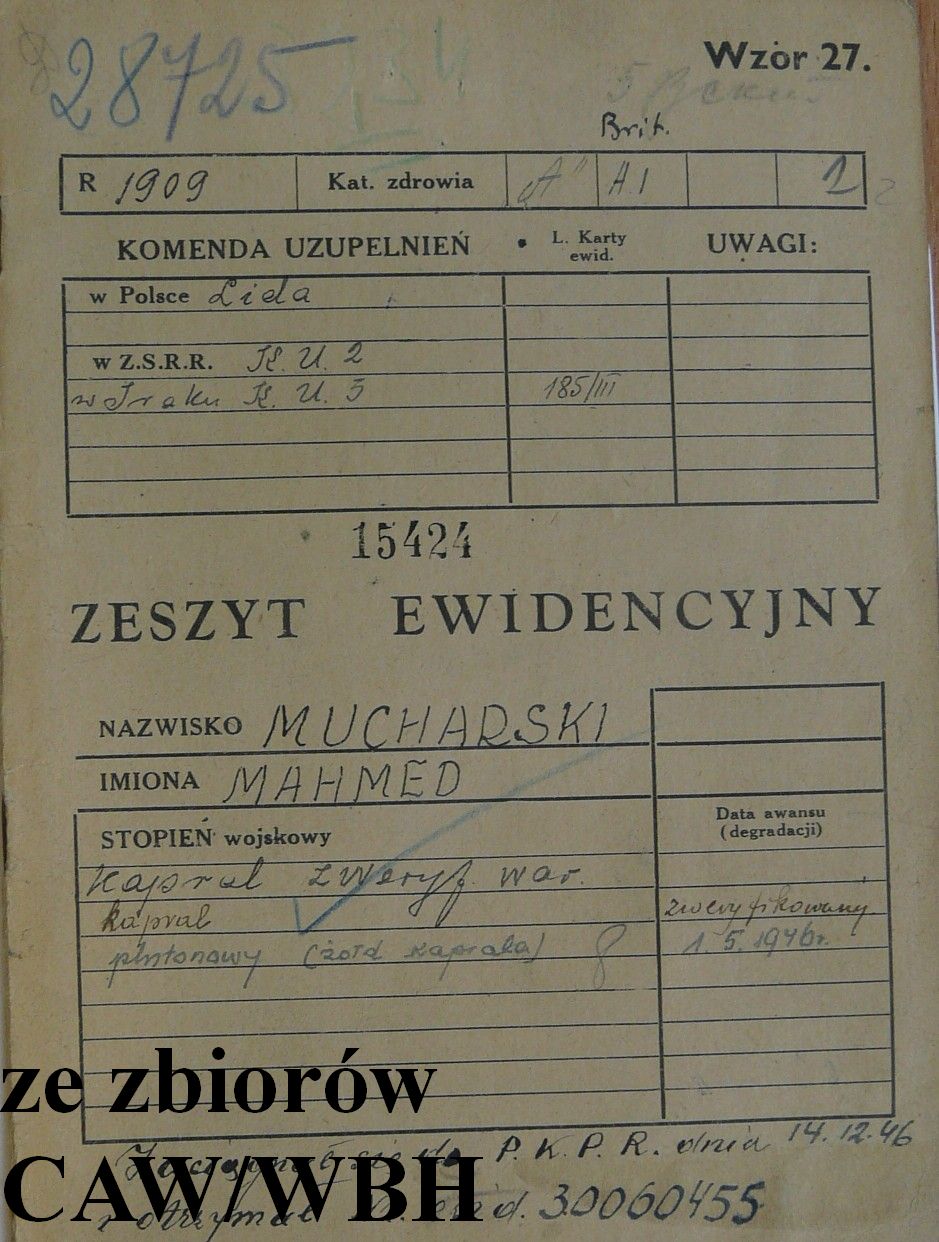 28725
Wzór 27.
Brit.
R 1909 Kat. zdrowia „A" A.1 1
KOMENDA UZUPELNIEŃ L. Karty ewid. UWAGI:
w Polsce Lida
w Z.S.R.R. K. U. 2
w Iraku K. U. 3 185/III
15424
ZESZYT EWIDENCYJNY
NAZWISKO MUCHARSKI
IMIONA MAHMED
STOPIEŃ wojskowy Data awansu (degradacji)
kapral zweryf. war.
kapral zweryfikowany
plutonowy (żołd kaprala) 1. 5. 1946r.
ze zbiorów
Zaciągnął się do P. K. P. R. dnia 14.12.46
CAW/WBH
i otrzymał ewid. 30060455